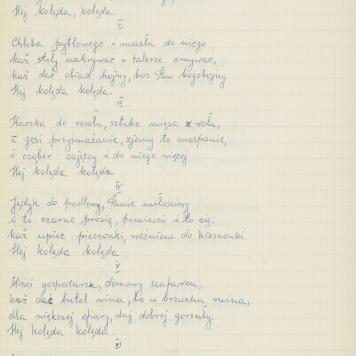 Hej kolęda, kolęda.
II
Chleba pytlowego i masła do niego
każ stoły nakrywać i talerze zmywać,
każ dać obiad hojny, boś Pan bogobojny
Hej kolęda kolęda.
III
Kaczka do rosołu, sztuka mięsa z wołu,
z gęsi przysmażanie, zjemy to mospanie,
i comber zajęczy i do niego więcej
Hej kolęda kolęda
IV
Jędyk do podlewy, Panie miłościwy
i to czarne prosię, pomieści i to się,
każ upiec pieczonki, weźniem do kieszonki
Hej kolęda kolęda
V
Mości gospodarzu, domowy szafarzu,
każ dać butel wina, bo w brzuchu ruina,
dla większej ofiary, daj dobrej gorzały.
Hej kolęda kolęda.
VI